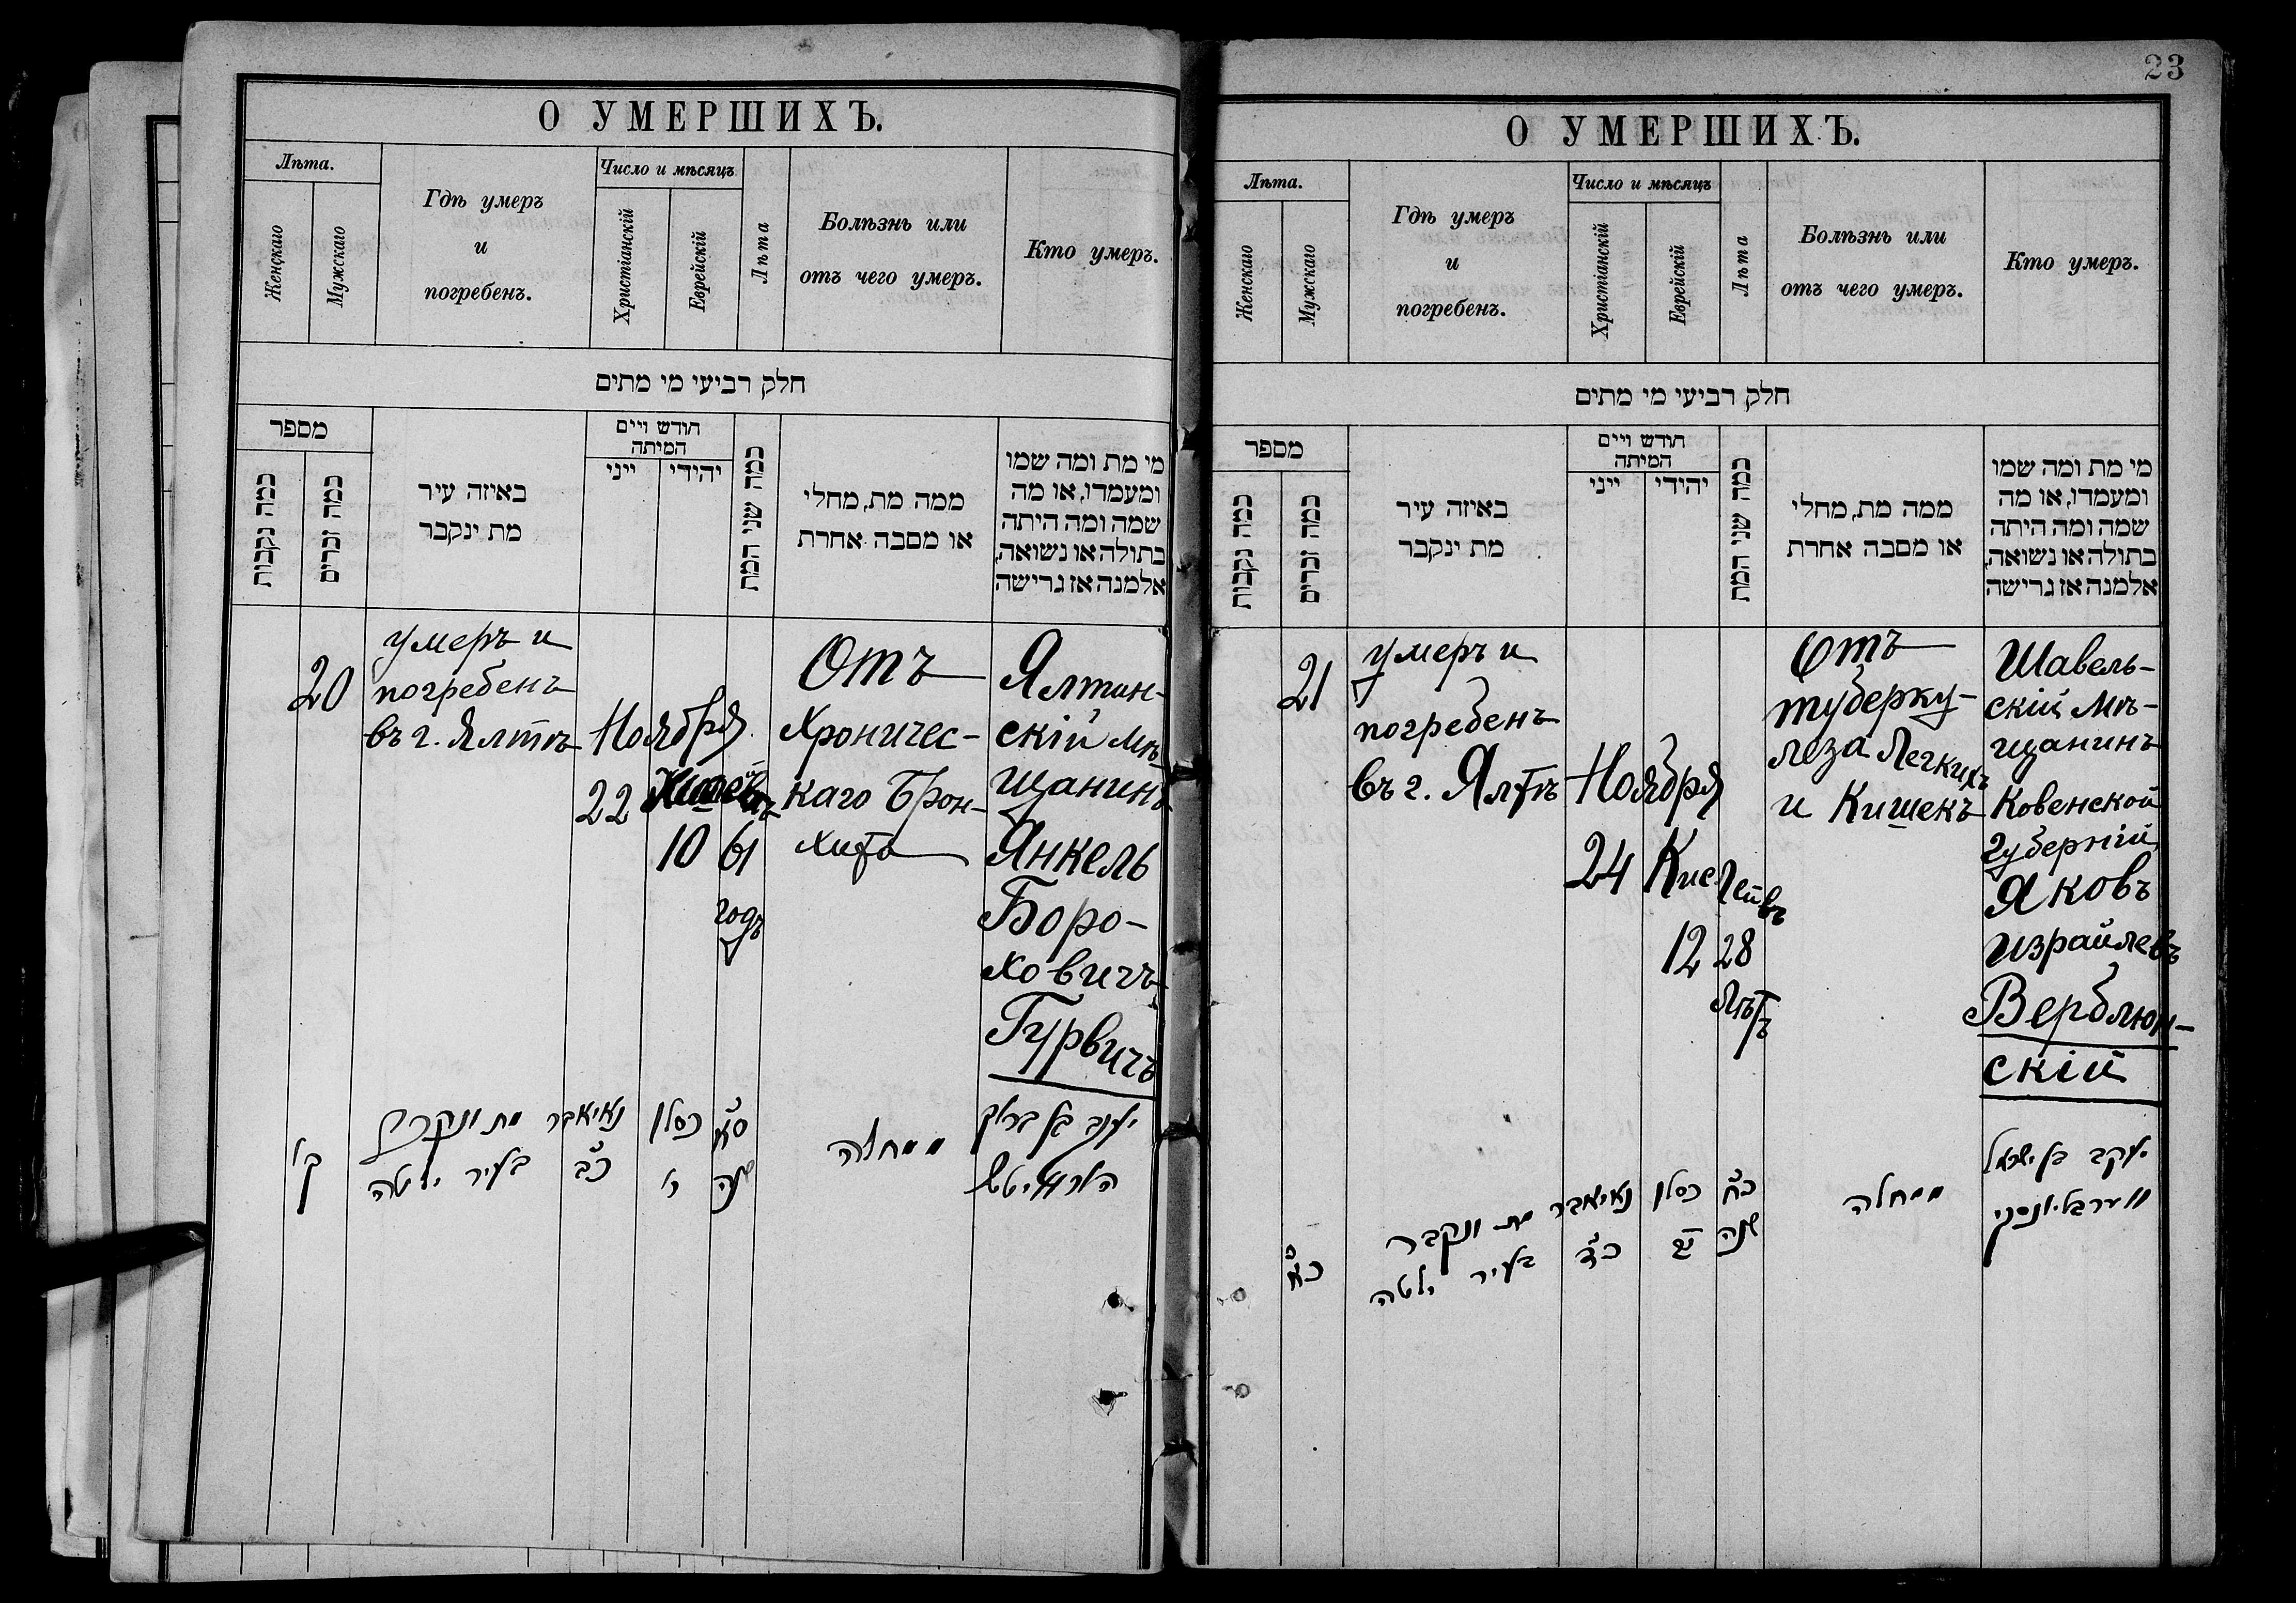 О УМЕРШИХЪ.
Лѣта.
Женскаго
Мужскаго
Гдѣ умеръ
и
погребенъ.
Число и мѣсяцъ
Христіанскій
Еврейскій
Лѣта
Болѣзнь или
отъ чего умеръ.
Кто умеръ.
חלק רביעי מי מתים
מספר
כמה נקבות
כמה זכרים
באיזה עיר
מת ינקבר
חודש ויים
המיתה
ייני
יהודי
כמה שני המת
ממה מת, מחלי
או מסבה אחרת
מי מת ומה שמו
ומעמדו, או מה
שמה ומה היתה
בתולה או נשואה,
אלמנה אז גרישה
20
умеръ и
погребенъ
въ г. Ялтѣ
Ноября
22
10
61
годъ
Отъ
Хроничес-
каго Брон-
хита
Ялтин-
скій Мѣ-
щанинъ
Янкель
Боро-
ховичъ
Гурвичъ
מת ונקבר
בעיר ילטה
נאיאבר
כ״ב
כסלו
י
ס״א
שנה
ממחלה
יעקב בן ברוך
23
О УМЕРШИХЪ.
Лѣта.
Женскаго
Мужскаго
Гдѣ умеръ
и
погребенъ.
Число и мѣсяцъ
Христіанскій
Еврейскій
Лѣта
Болѣзнь или
отъ чего умеръ.
Кто умеръ.
חלק רביעי מי מתים
מספר
כמה נקבות
כמה זכרים
באיזה עיר
מת ינקבר
חודש ויים
המיתה
ייני
יהודי
כמה שני המת
ממה מת, מחלי
או מסבה אחרת
מי מת ומה שמו
ומעמדו, או מה
שמה ומה היתה
בתולה או נשואה,
אלמנה אז גרישה
21
умеръ и
погребенъ
въ г. Ялтѣ
Ноября
24
Кислейвъ
12
28
Лѣтъ
Отъ
туберку-
леза Легкихъ
и Кишекъ
Шавель-
скій Мѣ-
щанинъ
Ковенской
Губерніи
Яковъ
Израйлевъ
Верблюн-
скій
כ״א
מת ונקבר
בעיר ילטה
נאיאבר
כ״ד
כסלו
י״ב
כ״ח
שנה
ממחלה
יעקב בן ישראל
ווערבליונסקי